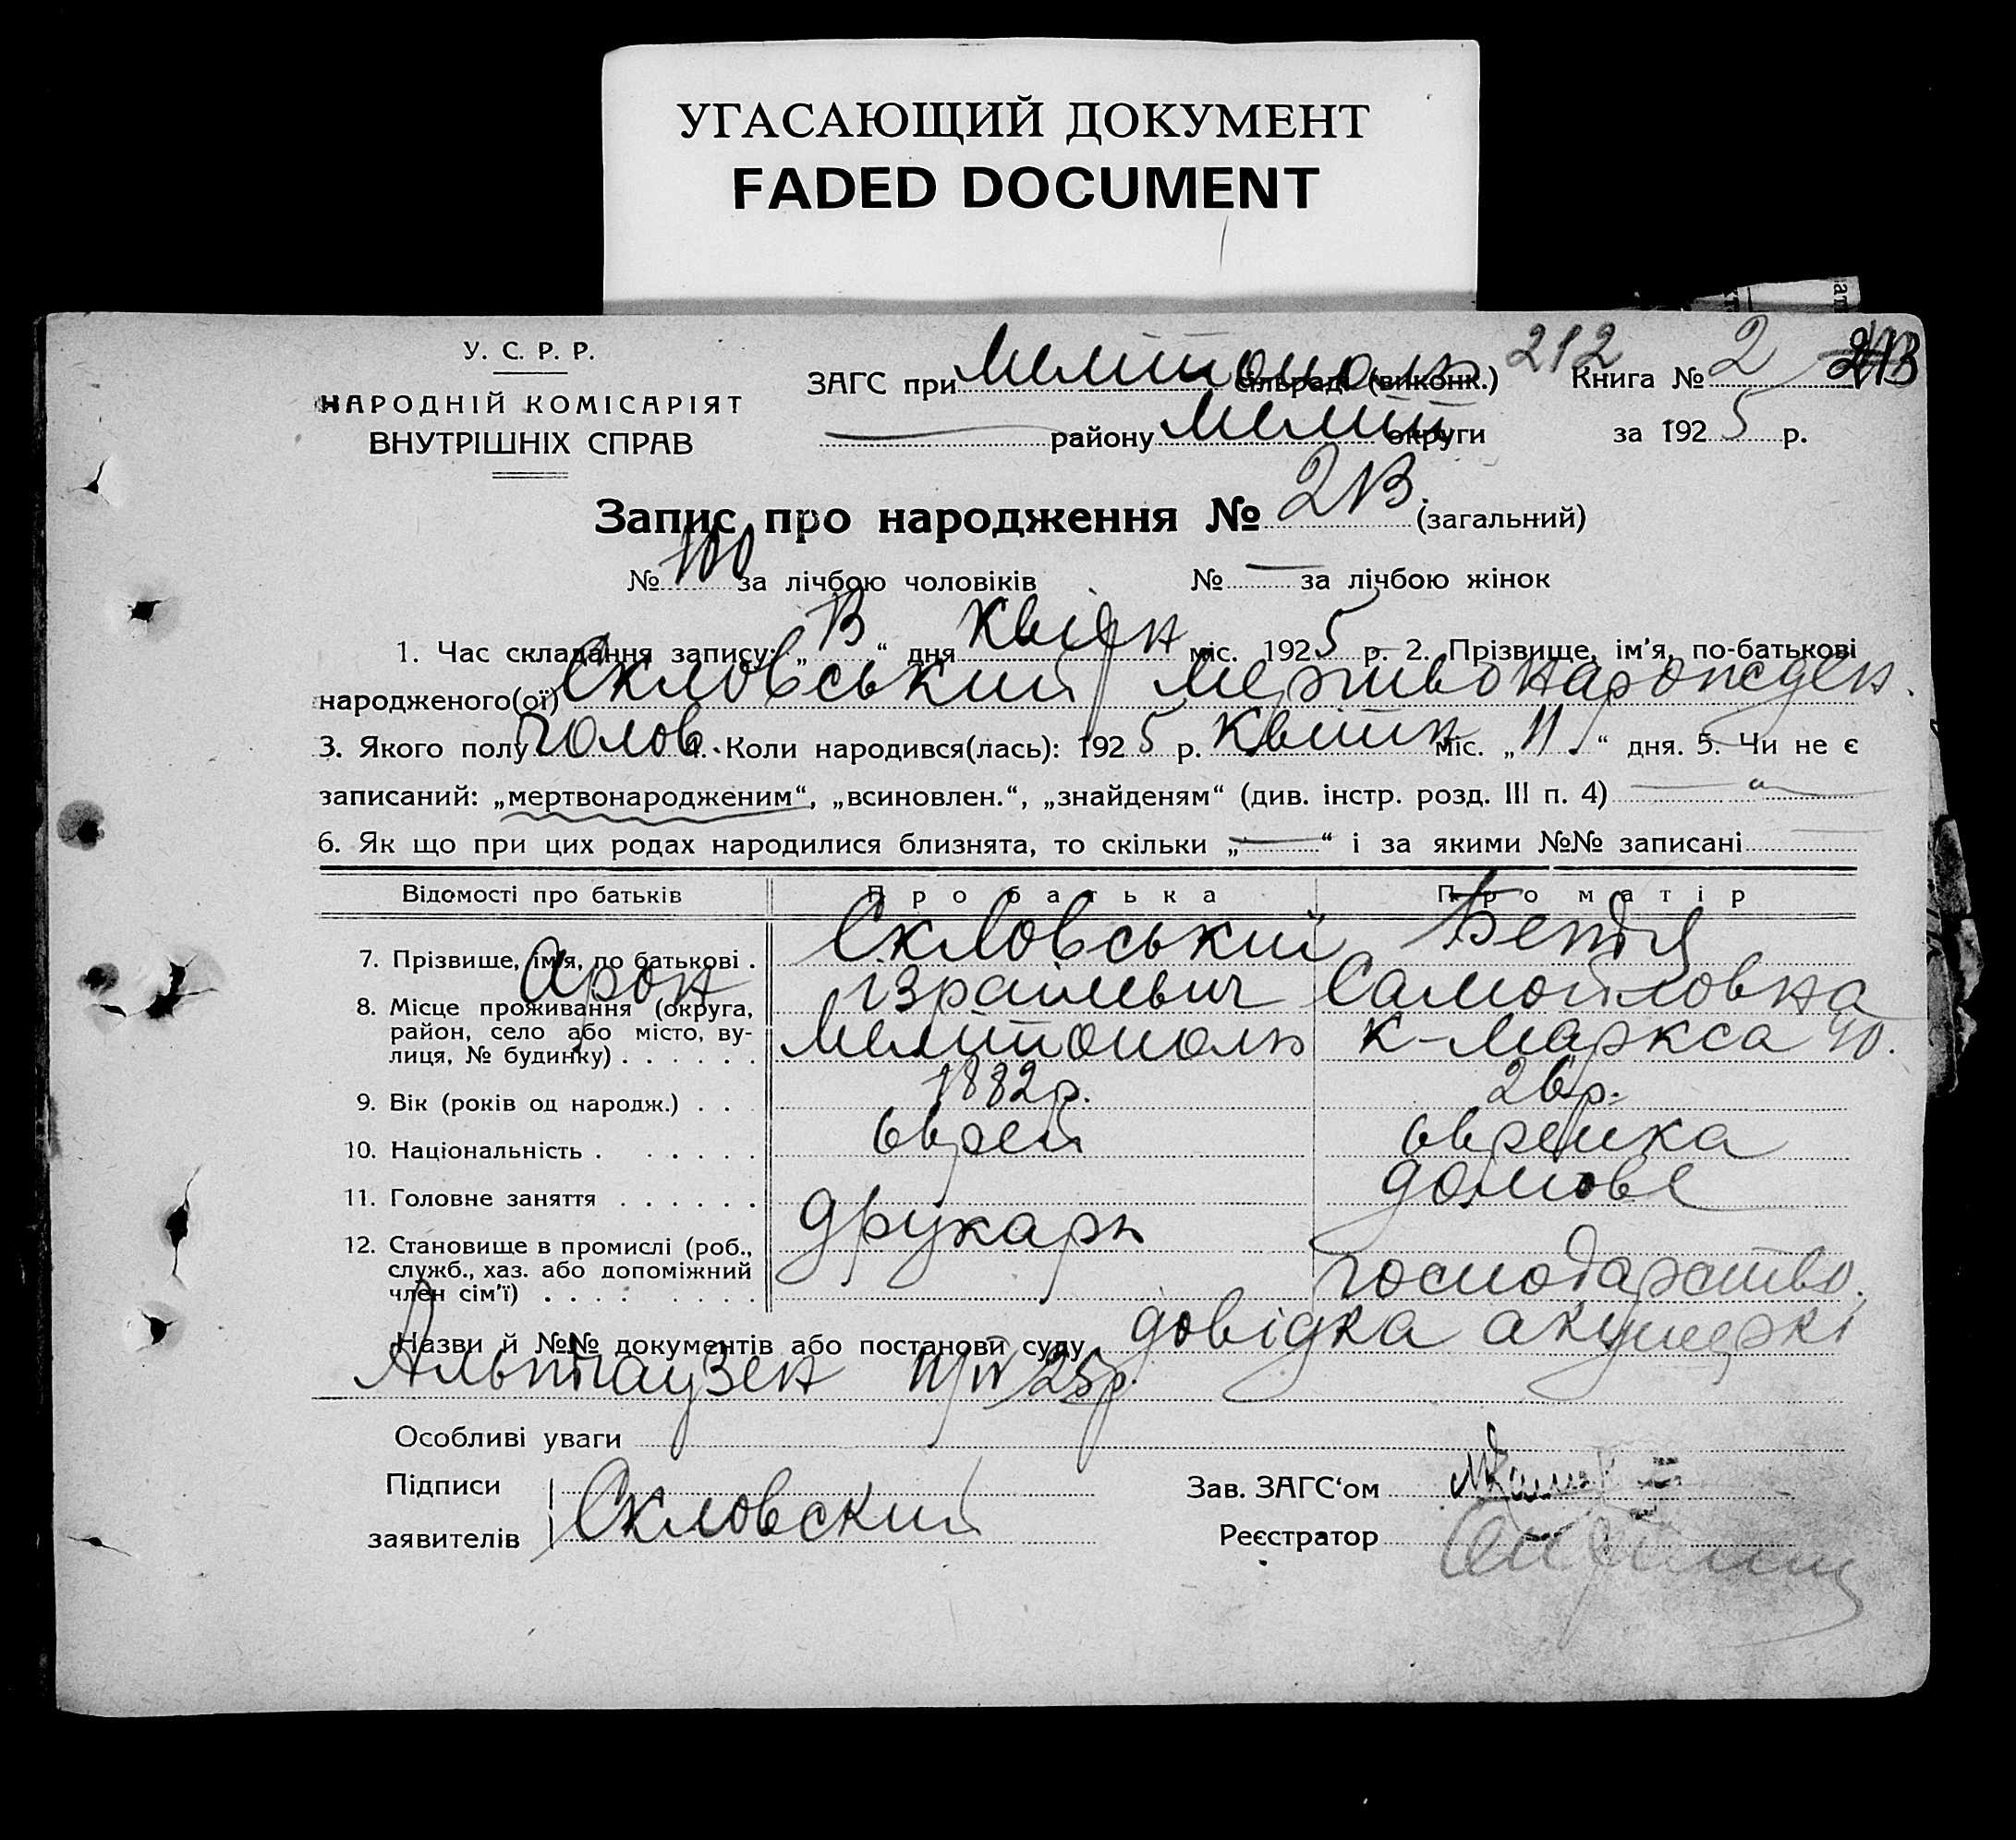 УГАСАЮЩИЙ ДОКУМЕНТ
FADED DOCUMENT
У. С. Р. Р.
НАРОДНІЙ КОМІСАРІЯТ
ВНУТРІШНІХ СПРАВ
ЗАГС при Мелітополь сільраді (виконк.) 212 Книга № 2 213
— району Меліт округи за 1925 р.
Запис про народження № 213 (загальний)
№ 100 за лічбою чоловіків № — за лічбою жінок
1. Час складання запису: „13“ дня Квітн міс. 1925 р. 2. Прізвище, ім'я, по-батькові
народженого(ої) Скловський мертвонарожден.
3. Якого полу чолов. 4. Коли народився(лась): 1925 р. Квітн міс. „11“ дня. 5. Чи не є
записаний: „мертвонародженим“, „всиновлен.“, „знайденям“ (див. інстр. розд. III п. 4) —
6. Як що при цих родах народилися близнята, то скільки „—“ і за якими №№ записані —
Відомості про батьків Про батька Про матір
7. Прізвище, ім'я, по батькові . Скловський Бетя
Арон Ізраїлевич Самойловна
8. Місце проживання (округа, район, село або місто, вулиця, № будинку) . . . . . . Мелітополь К-Маркса 40.
9. Вік (років од народж.) . . . 1882р. 26р.
10. Національність . . . . . . Єврей Єврейка
11. Головне заняття . . . . . . друкарь домове
12. Становище в промислі (роб., служб., хаз. або допоміжний член сім'ї) . . . . . . . . господарство.
Назви й №№ документів або постанови суду довідка акушерки
Альтгаузен 11/IV 25р.
Особливі уваги
Підписи
заявителів Скловский
Зав. ЗАГС'ом
Реєстратор